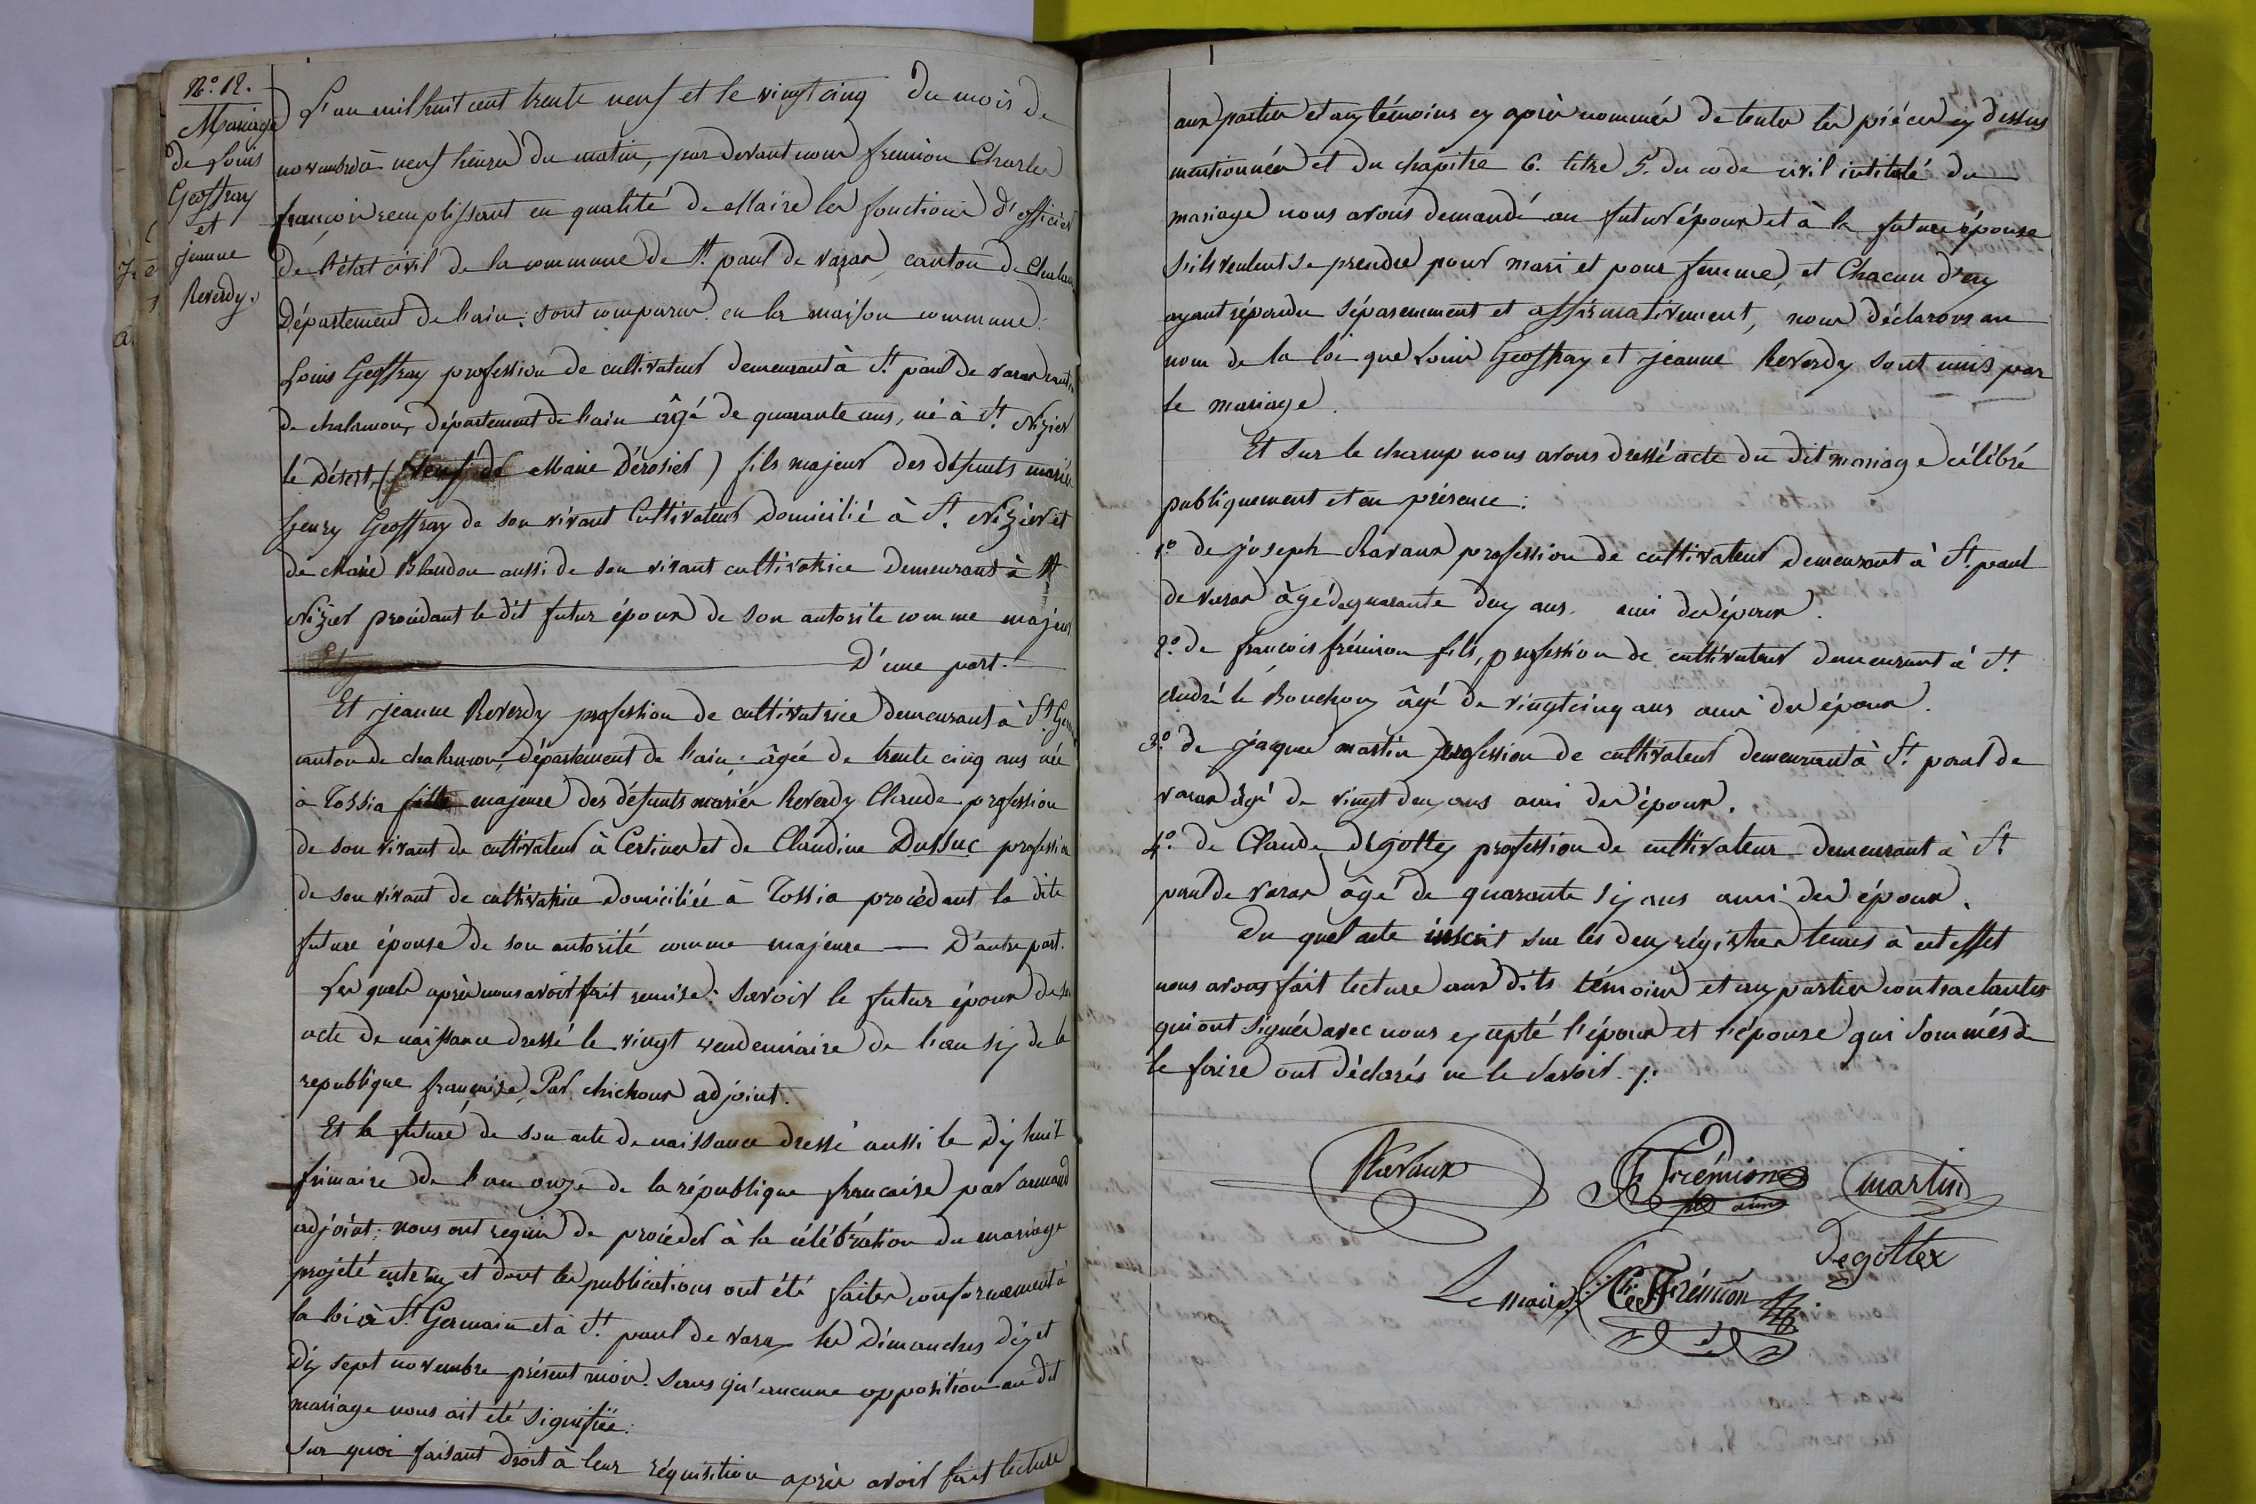 N.o 12.
Mariage
de Louis
Geoffray
et
jeanne
Reverdy.
L'an mil huit cent trente neuf et le vingt cinq du mois de
novembre à neuf heures du matin, par devant nous fremion Charles
françois remplissant en qualité de Maire les fonctions d'officier
de l'état civil de la commune de St. paul de varax, canton de Chalam
Département de l'ain; sont comparus en la maison commune:
Louis Geoffray profession de cultivateur demeurant à St. paul de varax canton
de chalamon, département de l'ain âgé de quarante ans, né à St. Nizier
le Désert, (Veuf de Marie Dérosier) fils majeur des défunts mariés
henry Geoffray de son vivant Cultivateur Domicilié à St. Nizier et
de Marie Blandon aussi de son vivant cultivatrice Demeurant à St
Nizier procédant le dit futur époux de son autorite comme majeur
D'une part.
Et jeanne Reverdy profession de cultivatrice demeurant à St. Ger
canton de chalamon, département de l'ain; âgée de trente cinq ans née
à Tossia fille majeure des défunts mariés Reverdy Claude profession
de son vivant de cultivateur à Certines et de Claudine Dussuc profession
de son vivant de cultivatrice domiciliée à Tossia procédant la dite
future épouse de son autorité comme majeure — D'autre part.
Les quels après nous avoir fait remise: savoir le futur époux de son
acte de naissance dressé le vingt vendemiaire de l'an six de la
republique française, Par chichoux adjoint.
Et la future de son acte de naissance dressé aussi le dix huit
frimaire de l'an onze de la république francaise par armand
adjoint; nous ont requis de procéder à la célébration du mariage
projeté entr'eux et dont les publications ont été faites conformement à
la loi à St. Germain et à St. paul de varax les Dimanches dix et
dix sept novembre présent mois. sans qu'aucune opposition au dit
mariage nous ait été signifiée:
sur quoi faisant droit à leur réquisition après avoir fait lecture
aux parties et aux témoins cy après nommés de toutes les pièces cy dessus
mentionnées et du chapitre 6. titre 5. du code civil intitulé du
mariage nous avons demandé au futur époux et à la future épouse
s'ils veulent se prendre pour mari et pour femme, et Chacun d'eux
ayant répondu séparemment et affirmativement, nous déclarons au
nom de la loi que Louis Geoffray et jeanne Reverdy sont unis par
le mariage.
Et sur le champ nous avons dressé acte du dit mariage célébré
publiquement et en présence:
1.o de joseph Ravaux profession de cultivateur demeurant à St. paul
de varax âgé de quarante deux ans. ami des époux.
2.o de francois frémion fils, profession de cultivateur demeurant à St.
André le Bouchoux âgé de vingt cinq ans ami des époux.
3.o de jaques martin profession de cultivateur demeurant à St. paul de
varax âgé de vingt deux ans ami des époux.
4.o de Claude Degottex profession de cultivateur demeurant à St.
paul de varax âgé de quarante six ans ami des époux.
Du quel acte inscrit sur les deux régistres tenus à cet effet
nous avons fait lecture aux dits témoins et aux parties contractantes
qui ont signés avec nous excepté l'époux et l'épouse qui sommés de
le faire ont déclarés ne le savoir ./.
Ravaux
F. Frémion
martin
Degottex
Le maire Ch. F. Frémion